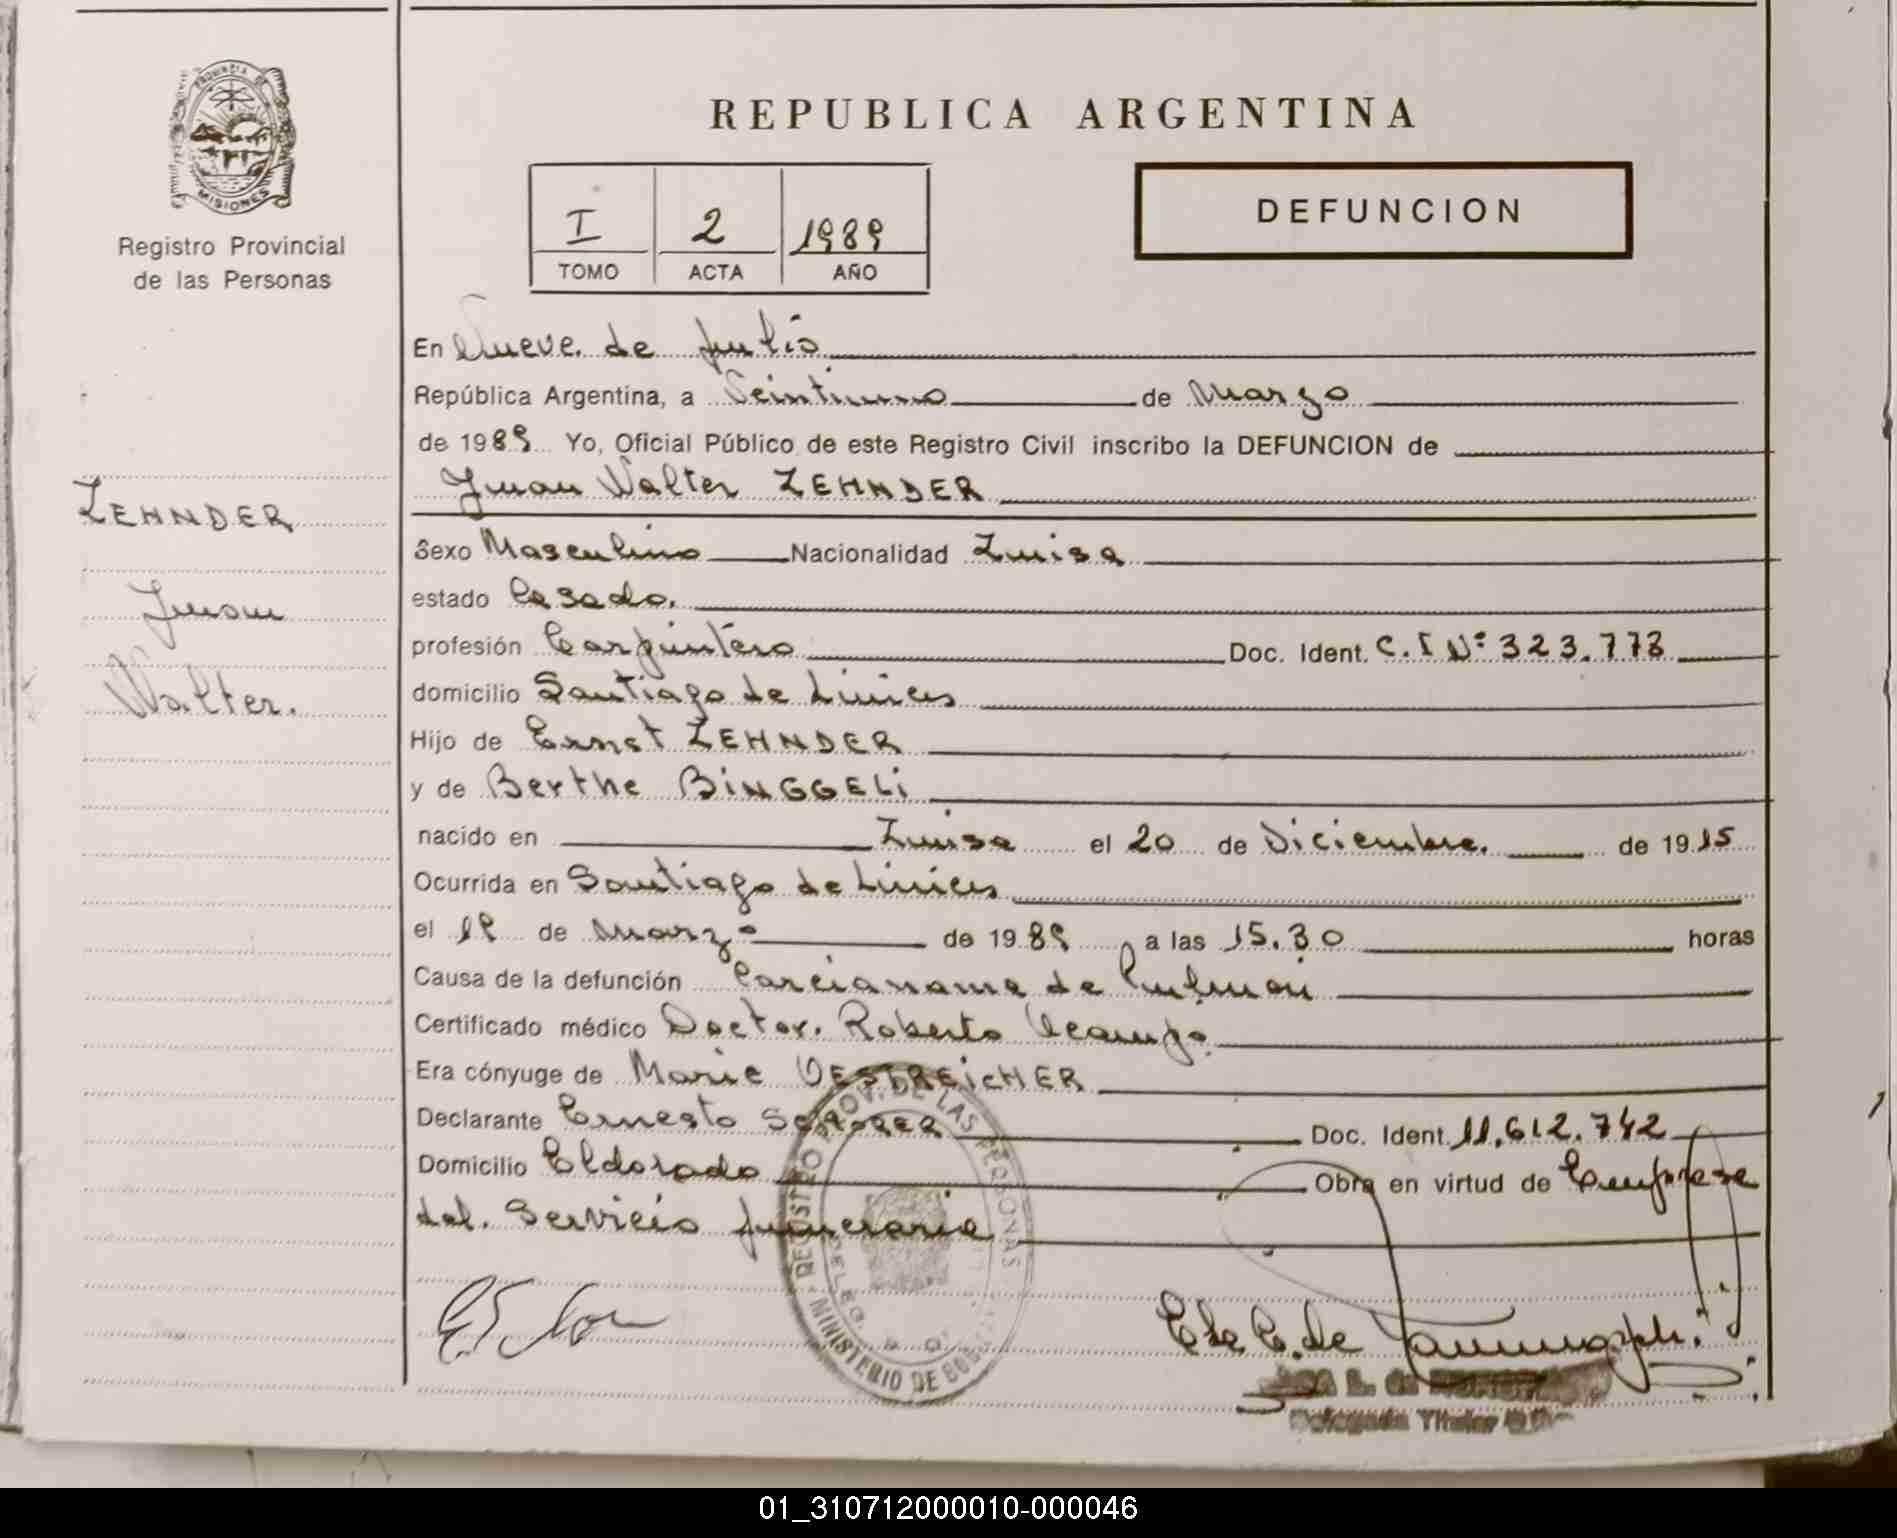 PROVINCIA DE
MISIONES
Registro Provincial
de las Personas
ZEHNDER
Juan
Walter.
REPUBLICA ARGENTINA
I 2 1989
TOMO ACTA AÑO
DEFUNCION
En Nueve de Julio
República Argentina, a Veintiuno de Marzo
de 1989 Yo, Oficial Público de este Registro Civil inscribo la DEFUNCION de
Juan Walter ZEHNDER
Sexo Masculino Nacionalidad Zuisa
estado Casado.
profesión Carpintero Doc. Ident. C.I Nº 323.773
domicilio Santiago de Liniers
Hijo de Ernst ZEHNDER
y de Berthe BINGGELi
nacido en Zuisa el 20 de Diciembre. de 1915
Ocurrida en Santiago de Liniers
el 19 de Marzo de 1989 a las 15.30 horas
Causa de la defunción Carcianoma de Pulmon
Certificado médico Doctor. Roberto Ocampo
Era cónyuge de Marie OESTREICHER
Declarante Ernesto Doc. Ident. 11.612.742
Domicilio Eldorado Obra en virtud de Emprese
del. Servicio funerario
REGISTRO PROV. DE LAS PERSONAS
MINISTERIO DE
DELEG.
Delegada Titular
01_310712000010-000046